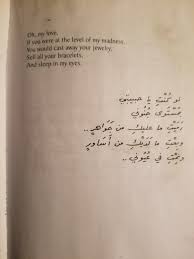 Oh, my love,
If you were at the level of my madness,
You would cast away your jewelry,
Sell all your bracelets,
And sleep in my eyes.
لو كنتِ يا حبيبتي
بمستوى جنوني
رميتِ ما عليكِ من جواهرٍ..
وبعتِ ما لديكِ من أساورٍ
ونمتِ في عيوني..